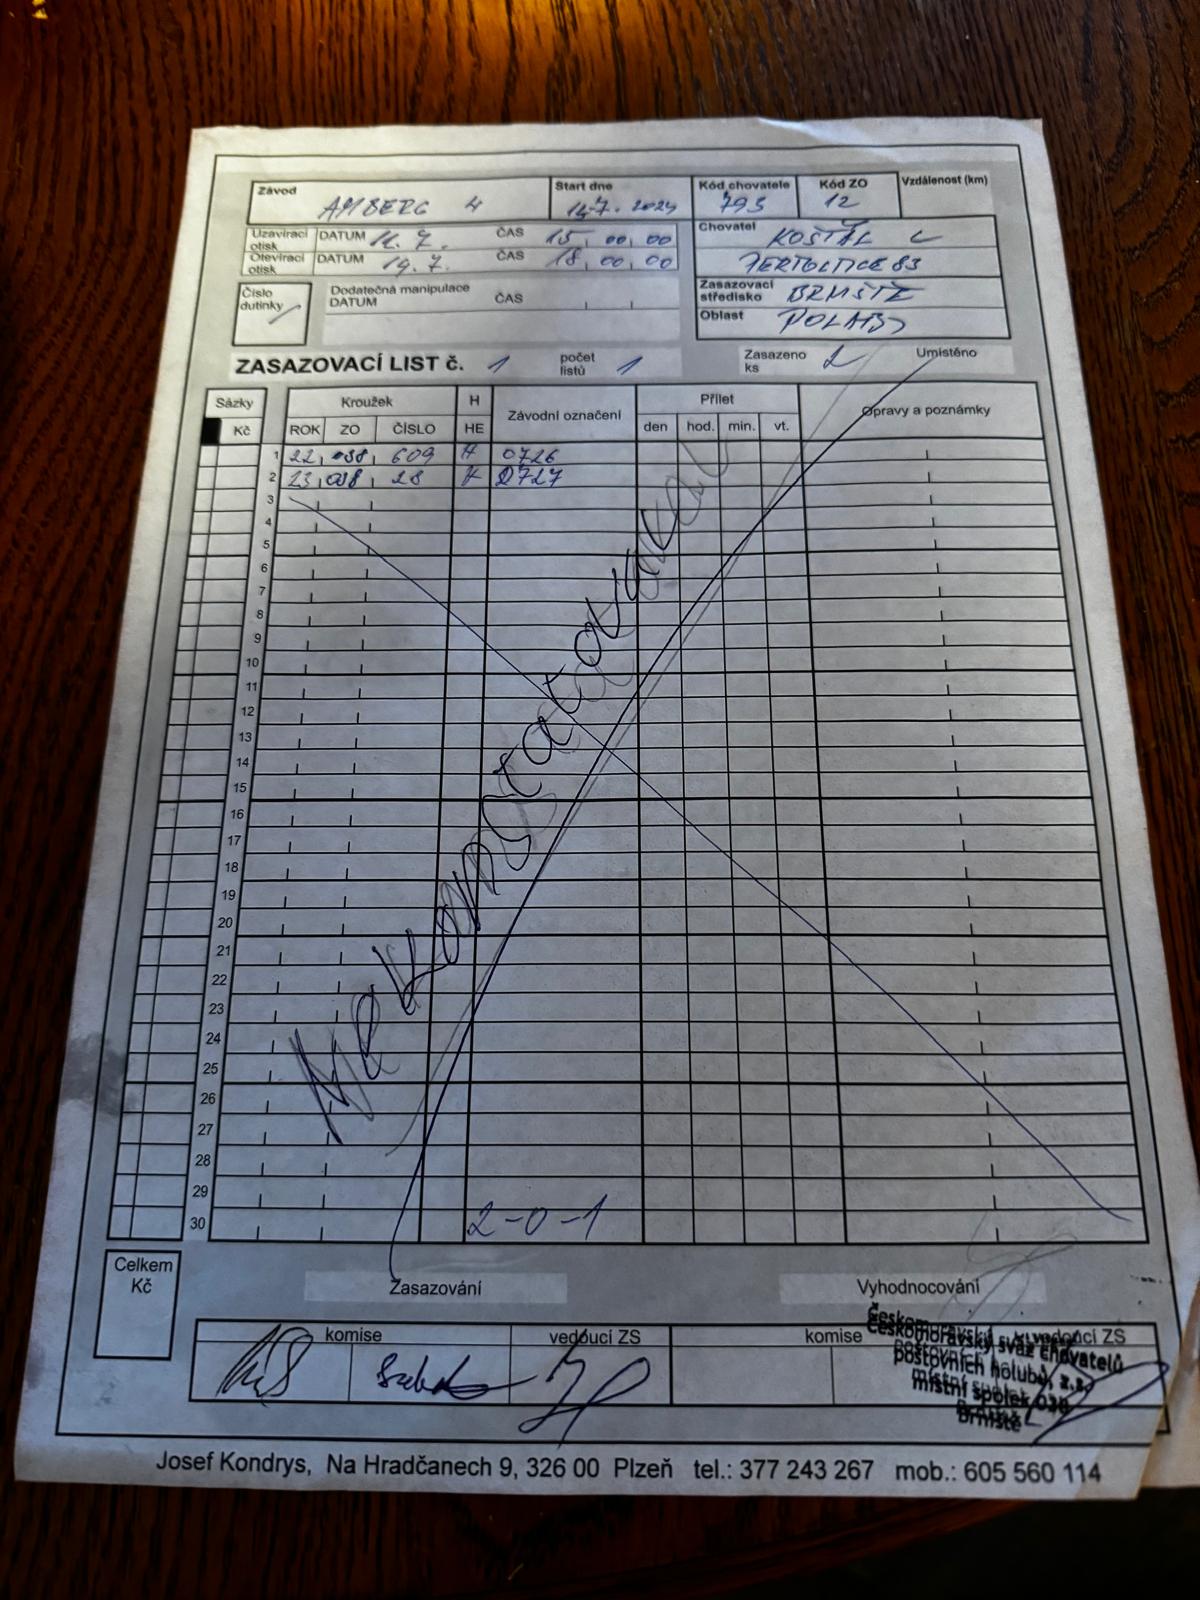 Závod AMBERG 4 Start dne 14.7. 2024 Kód chovatele 793 Kód ZO 12 Vzdálenost (km)
Uzavírací otisk DATUM 11. 7. ČAS 15 00 00 Chovatel KOŠŤÁL
Otevírací otisk DATUM 14. 7. ČAS 18 00 00 PERTOLTICE 83
Číslo dutinky Dodatečná manipulace DATUM ČAS Zasazovací středisko BRNIŠTĚ
Oblast POLABÍ
ZASAZOVACÍ LIST č. 1 počet listů 1 Zasazeno ks 2 Umístěno
Sázky Kroužek H Závodní označení Přílet Opravy a poznámky
Kč ROK ZO ČÍSLO HE den hod. min. vt.
1 22 038 609 H 0726
2 23 038 28 H 0727
3
4
5
6
7
8
9
10
11
12
13
14
15
16
17
18
19
20
21
22
23
24
25
26
27
28
29
30 2-0-1
Nekonstatoval
Celkem Kč
Zasazování Vyhodnocování
komise vedoucí ZS komise vedoucí ZS
Českomoravský svaz chovatelů
poštovních holubů, z.s.
místní spolek 038
Brniště
Josef Kondrys, Na Hradčanech 9, 326 00 Plzeň tel.: 377 243 267 mob.: 605 560 114